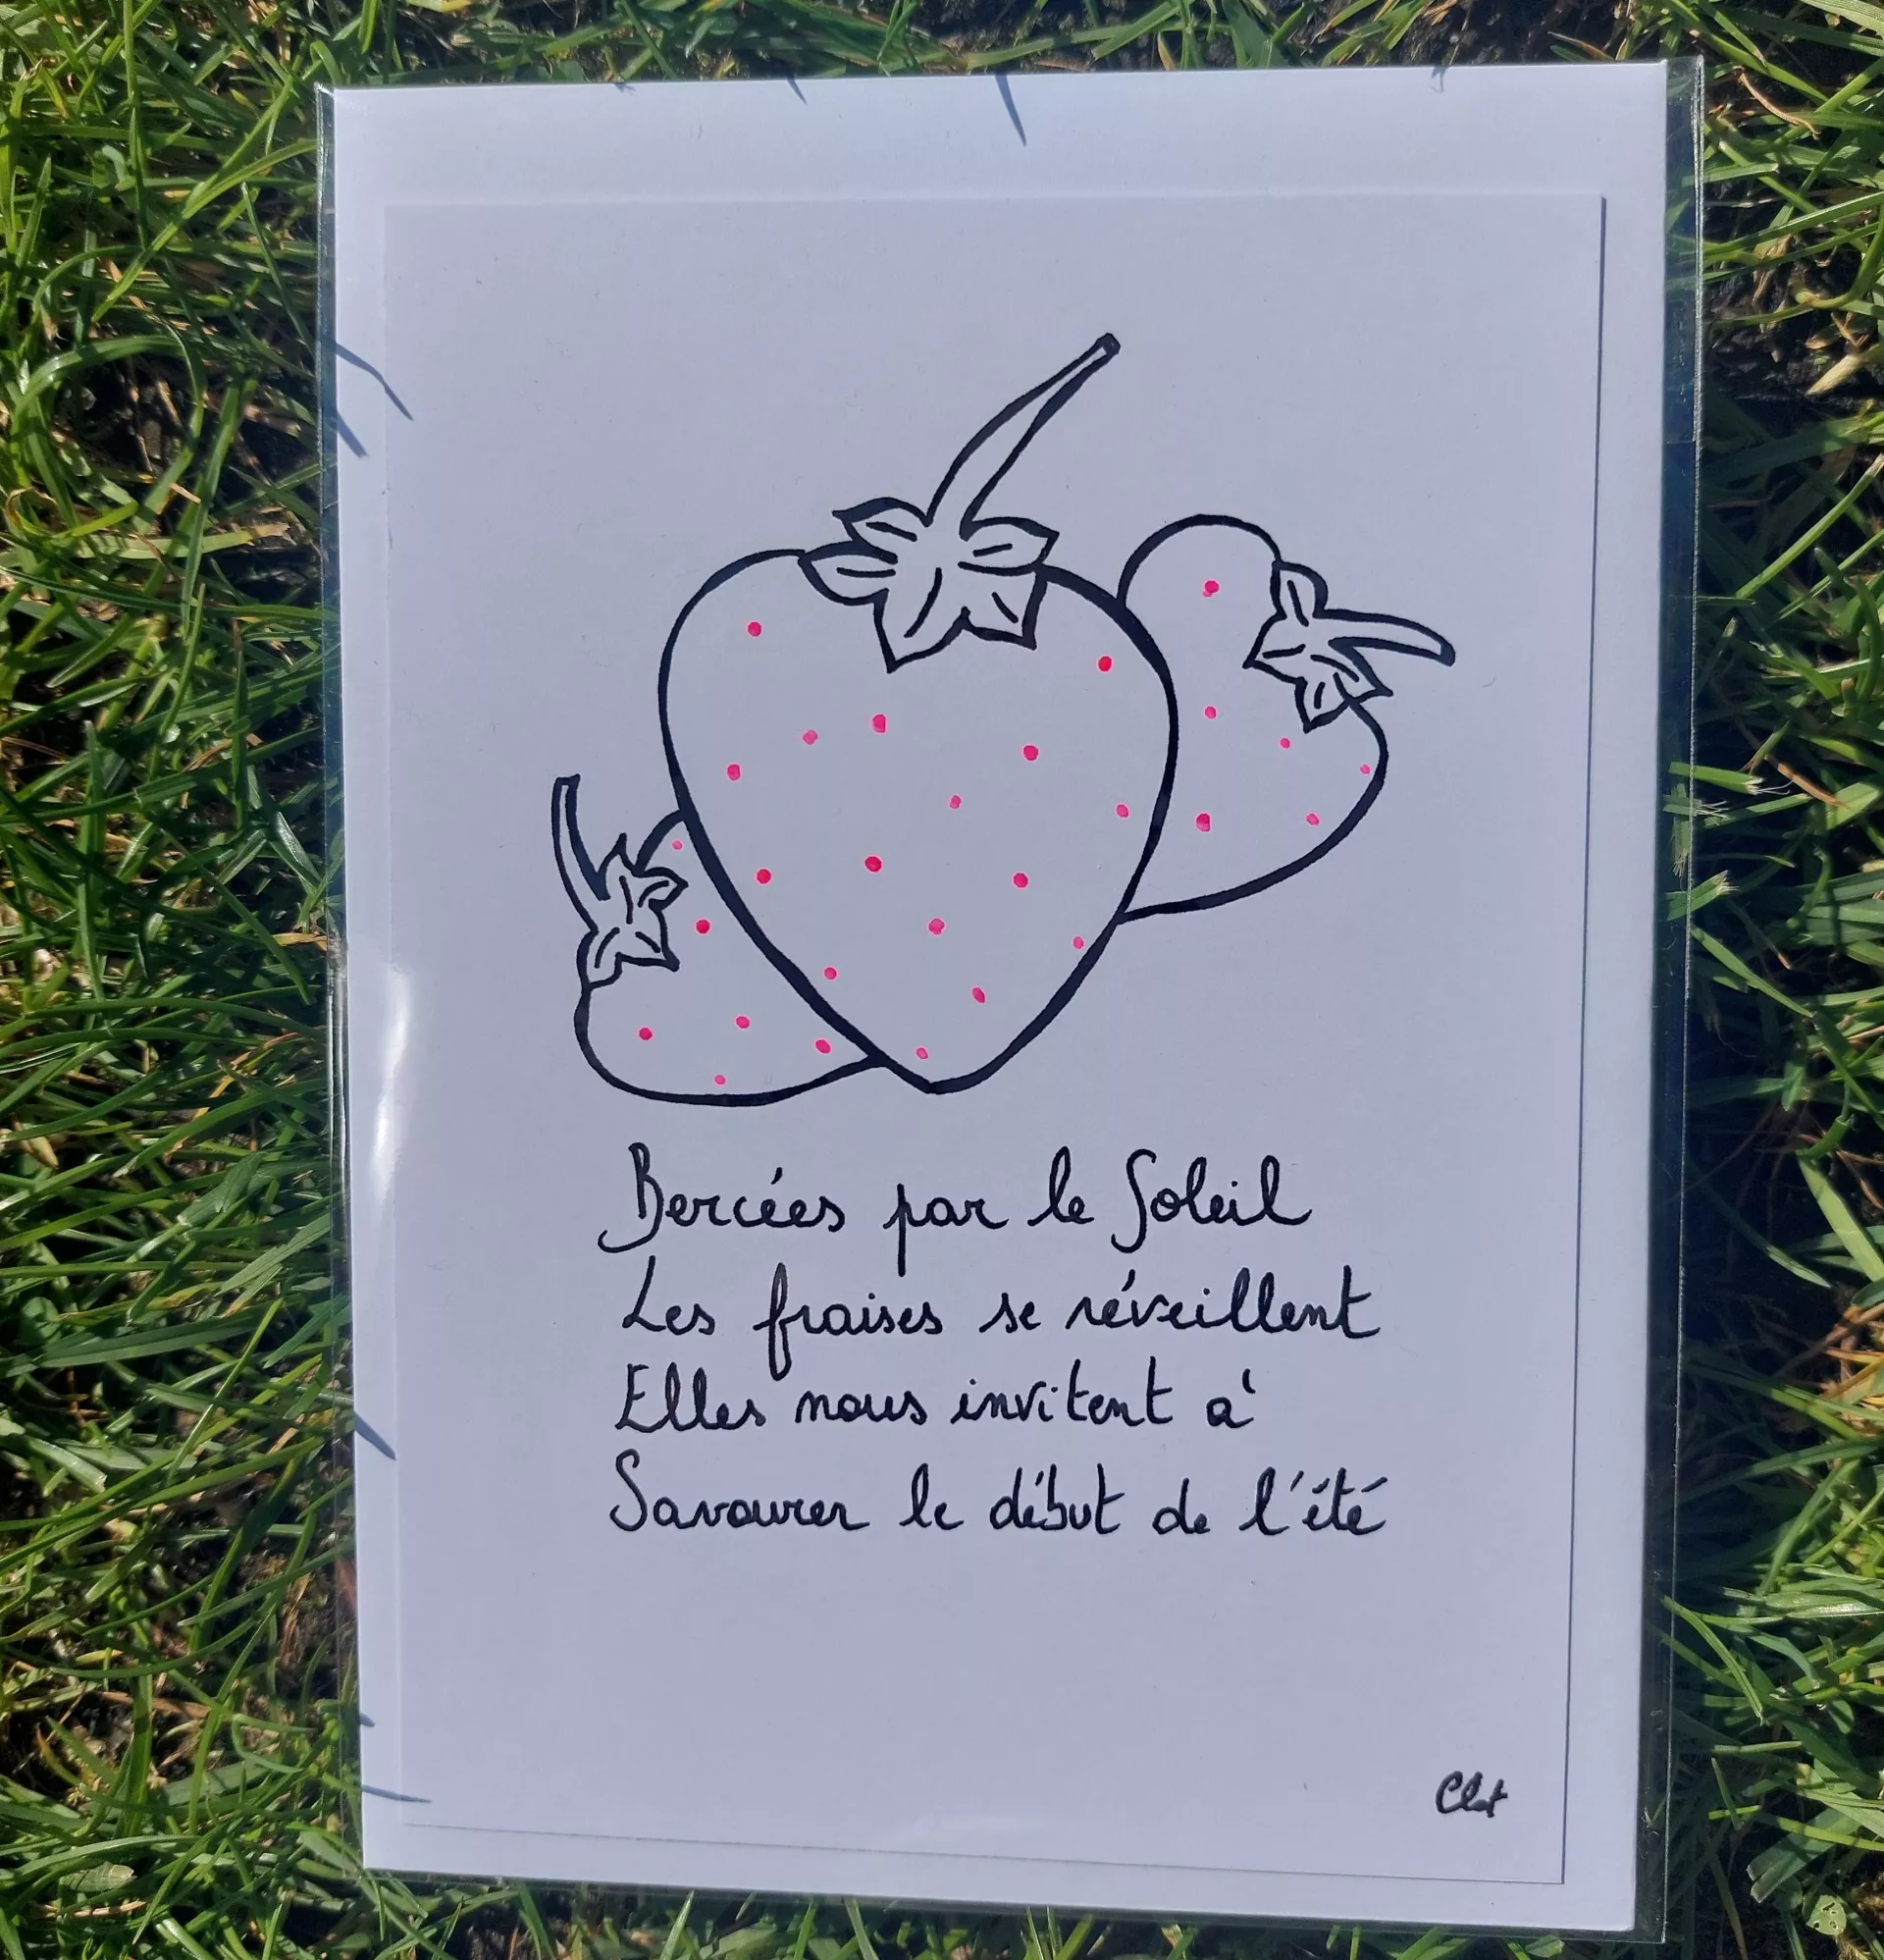 Bercées par le Soleil
Les fraises se réveillent
Elles nous invitent à
Savourer le début de l'été